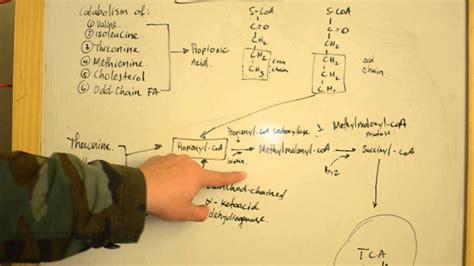 Catabolism of:
① Valine
② Isoleucine
③ Threonine
④ Methionine
⑤ Cholesterol
⑥ Odd-Chain FA
Propionic
Acid.
S-CoA
C=O
CH2
CH2
CH3
even
chain
S-CoA
C=O
CH2
CH2
CH2
CH3
odd
chain
Threonine
Propionyl-CoA
Propionyl-CoA carboxylase
biotin
Methylmalonyl-CoA
Methylmalonyl-CoA
mutase
B12
Succinyl-CoA
branched-chained
α-ketoacid
dehydrogenase
TCA